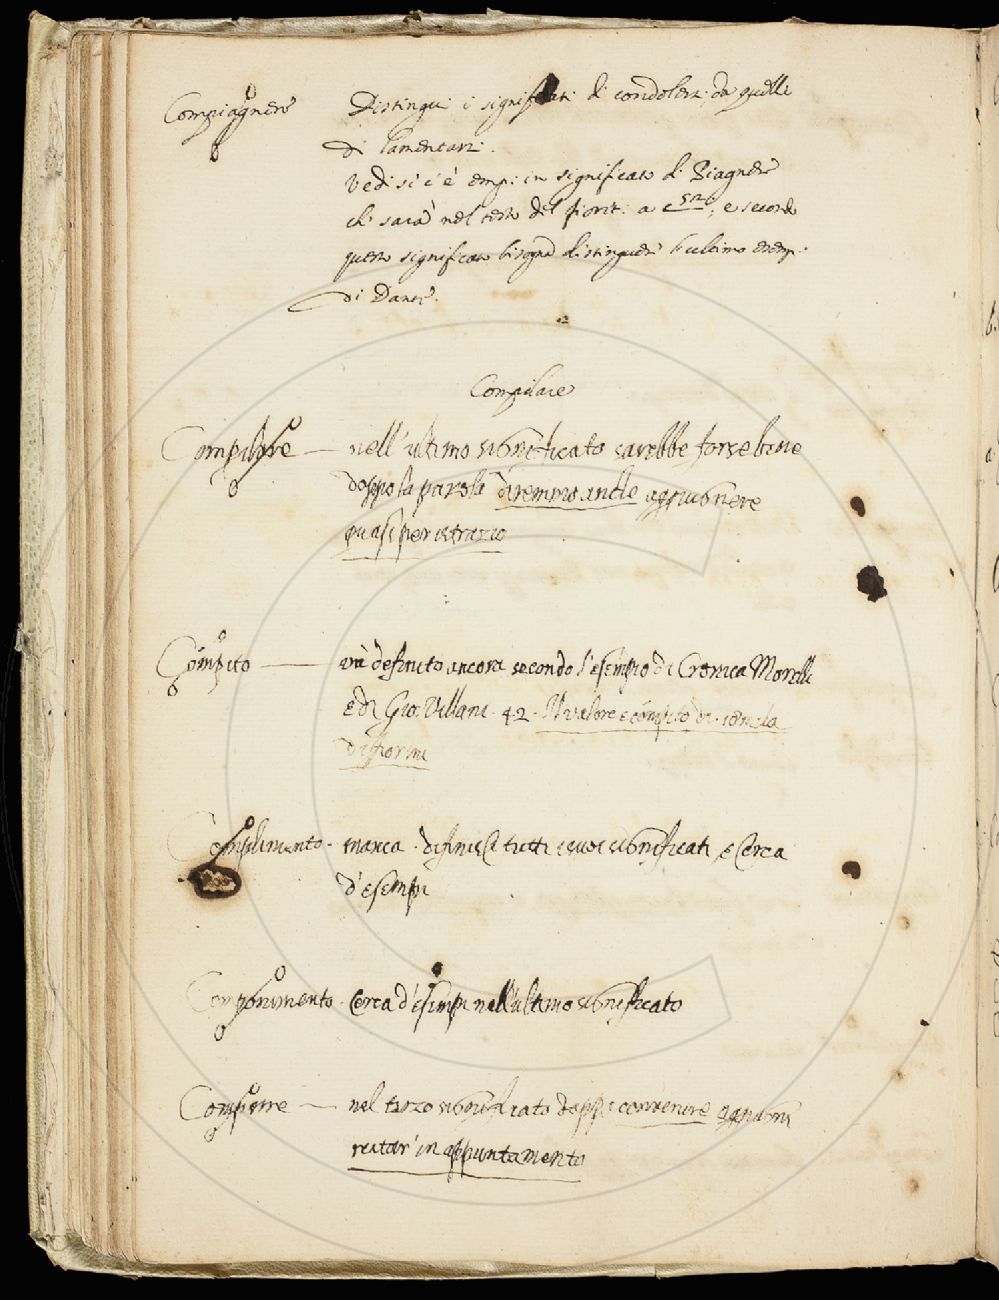 Compiagnere Distingui i significati di condolersi da quelli
di lamentarsi.
Vedi si c'è emp: in significato di Piagnere
ch sarà nel testo del fiorit: a c 52; e secondo
questo significato bisogna distinguere l'ultimo esemp.
di Dante.
Compilare
Compilare — nell'ultimo significato sarebbe forse bene
doppo la parola diremmo anche aggiugnere
quasi per istrazio
Cómpito — va definito ancora secondo l'esempio di Cronica Morelli
e di Gio: Villani. 42. Il valore e cómpito di
di fiorini
Complimento - manca. difinisce tutti i suoi significati, e Cerca
d'esempi
Componimento - Cerca d'esempi nell'ultimo significato
Comporre — nel terzo significato doppo convenire aggiugni
restar' in appuntamento